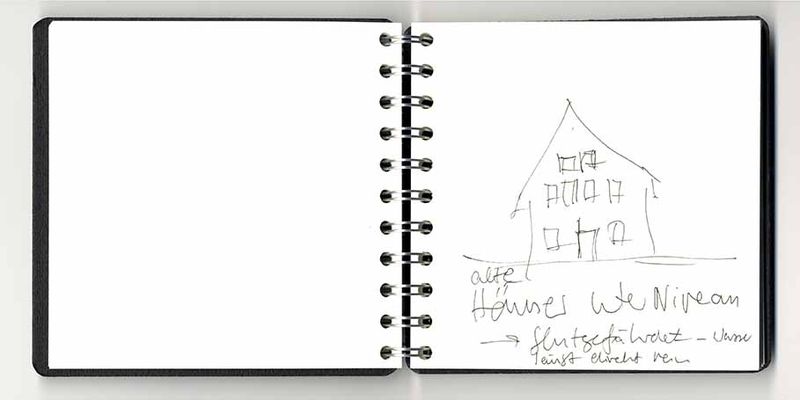 alte
Häuser unter Niveau
→ flutgefährdet – Wasser
läuft direkt rein